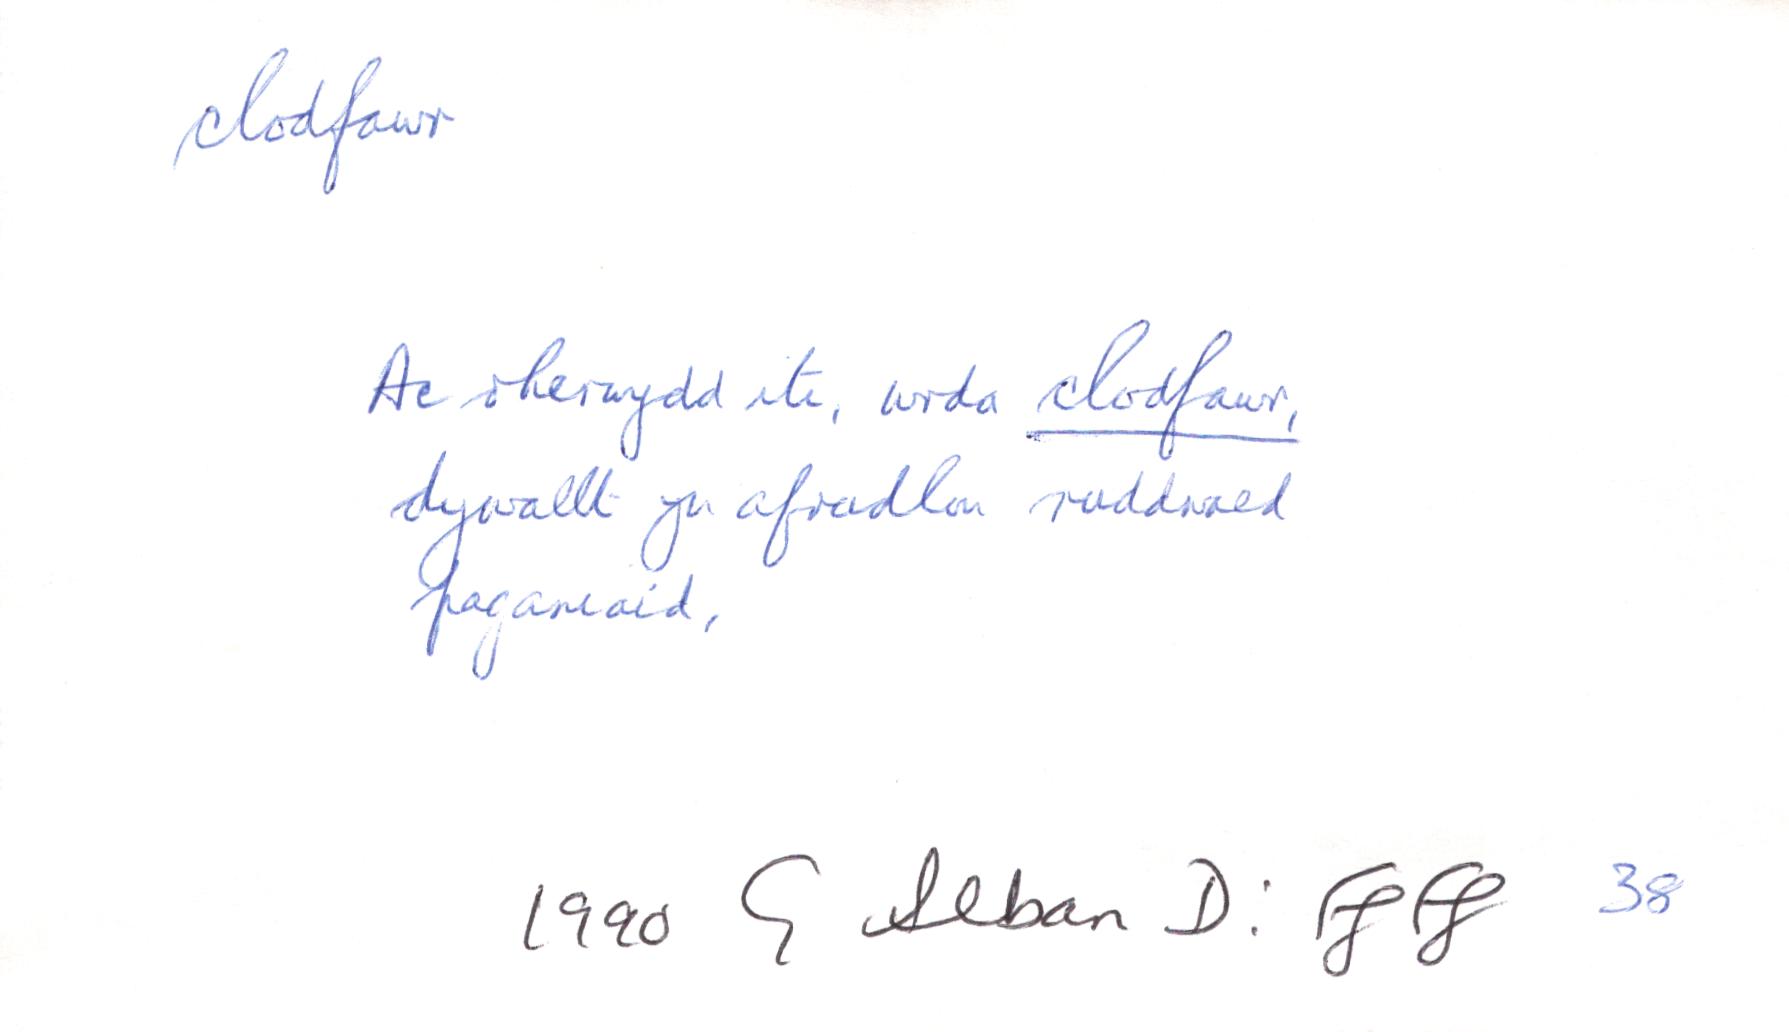 clodfawr
Ac oherwydd iti, wrda clodfawr,
dywallt yn afradlon ruddwaed
paganiaid,
1990 G Alban D: FfFf 38